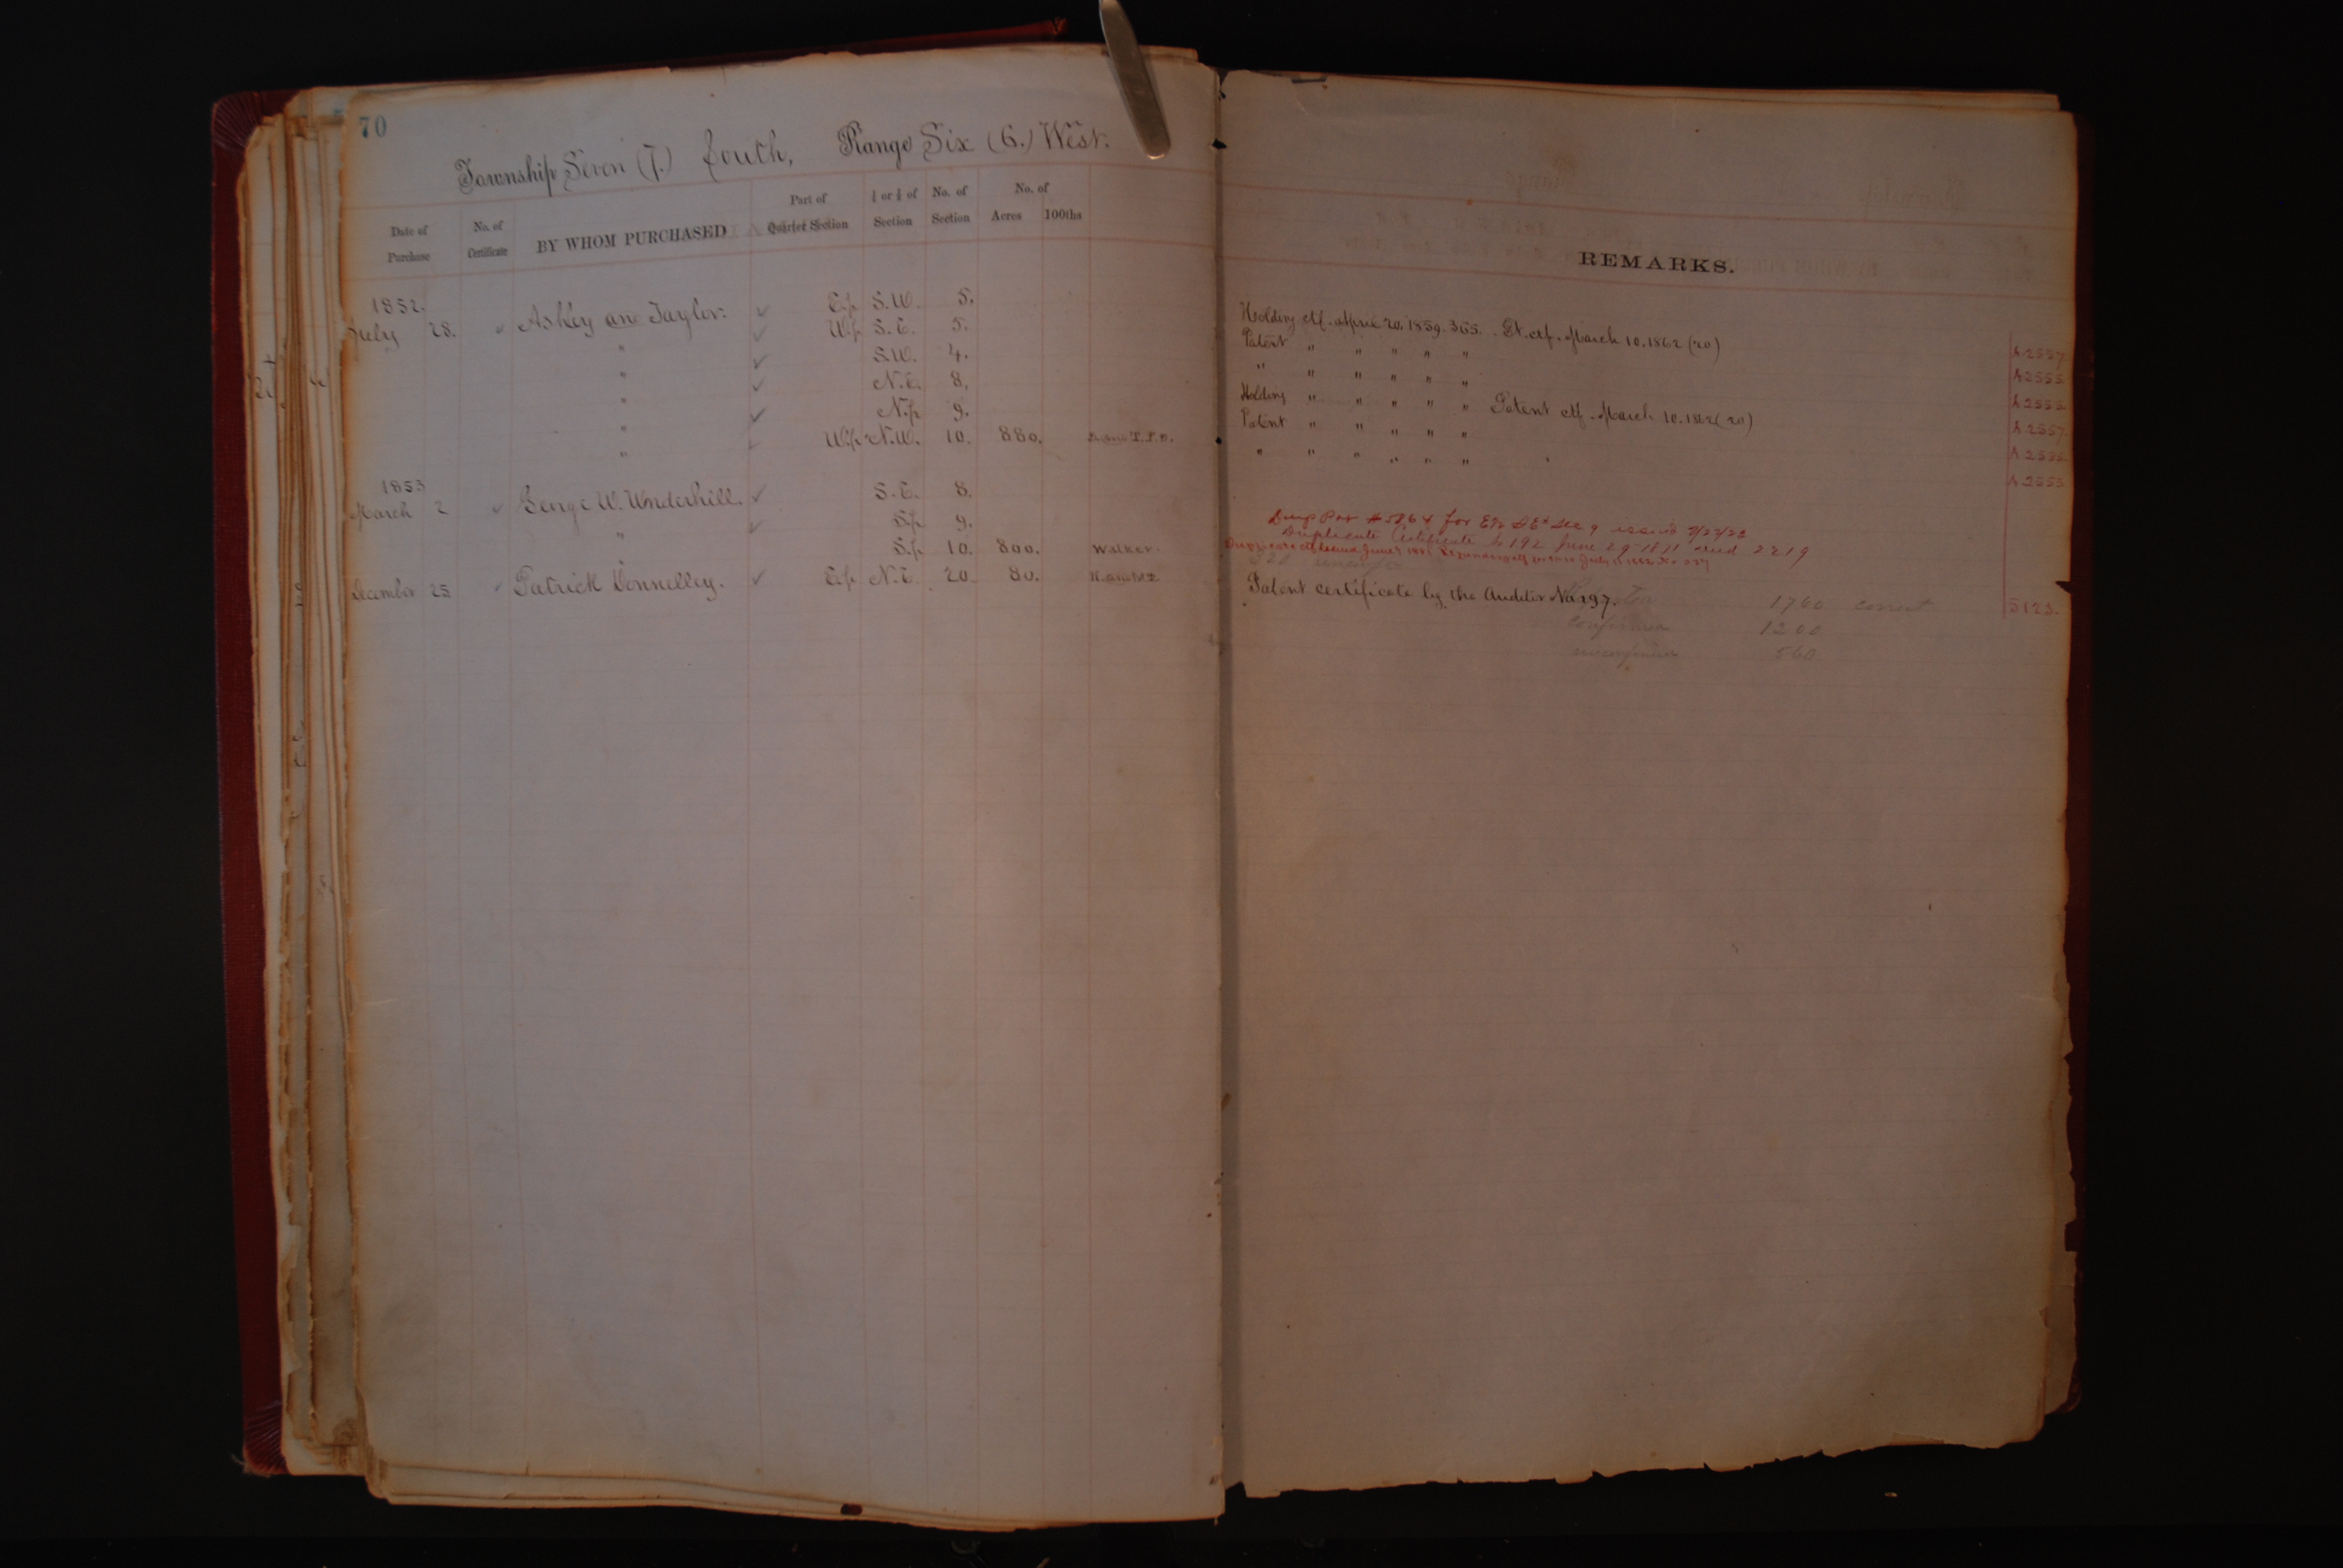 70
Township Seven (7.) South, Range Six (6.) West.
Date of Purchase No. of Certificate BY WHOM PURCHASED Part of Quarter Section ¼ or ½ of Section No. of Section No. of Acres 100ths
1852.
July 28. Ashley and Taylor. E½ S.W. 5.
" W½ S.E. 5.
" S.W. 4.
" N.E. 8.
" N½ 9.
" W½ N.W. 10. 880.
1853
March 2 George W. Underhill. S.E. 8.
" S½ 9.
" S½ 10. 800. Walker.
December 25 Patrick Donnelley. E½ N.E. 20. 80.
REMARKS.
Holding ctf. April 20. 1859. 365. Pt. ctf. March 10. 1862 (20) A 2557
Patent " " " " " A 2555
" " " " " " A 2555
Holding " " " " " Patent ctf. March 10. 1862 (20) A 2557
Patent " " " " " A 2555
" " " " " " A 2555
Dup Pat # 5864 for E½ SE¼ Sec 9 issued
Duplicate Certificate No 192 June 29 1871 2219
Patent certificate by the Auditor No 197. 5123.
1760 correct
confirmed 1200
unconfirmed 560